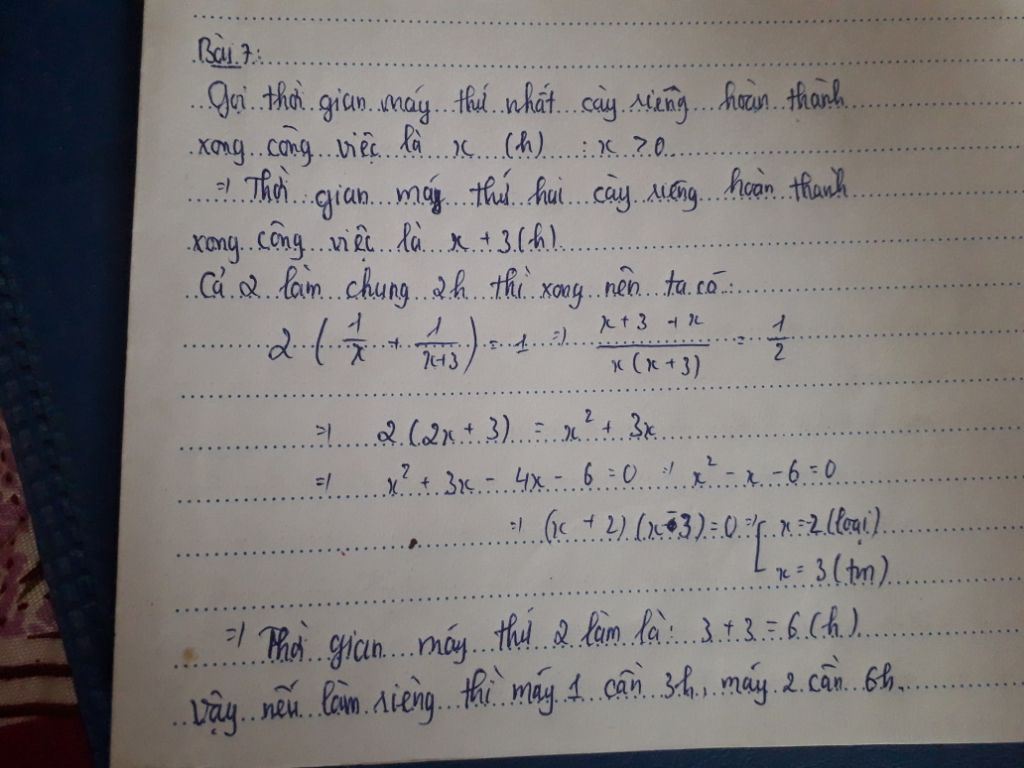 Bài 7:
Gọi thời gian máy thứ nhất cày riêng hoàn thành
xong công việc là x (h) : x > 0
=> Thời gian máy thứ hai cày riêng hoàn thanh
xong công việc là x + 3 (h)
Cả 2 làm chung 2h thì xong nên ta có:
2 ( 1/x + 1/(x+3) ) = 1 => (x + 3 + x)/(x(x + 3)) = 1/2
=> 2 (2x + 3) = x² + 3x
=> x² + 3x - 4x - 6 = 0 => x² - x - 6 = 0
=> (x + 2) (x - 3) = 0 => [ x = -2 (loại)
x = 3 (tm)
=> Thời gian máy thứ 2 làm là: 3 + 3 = 6 (h)
Vậy nếu làm riêng thì máy 1 cần 3h, máy 2 cần 6h.